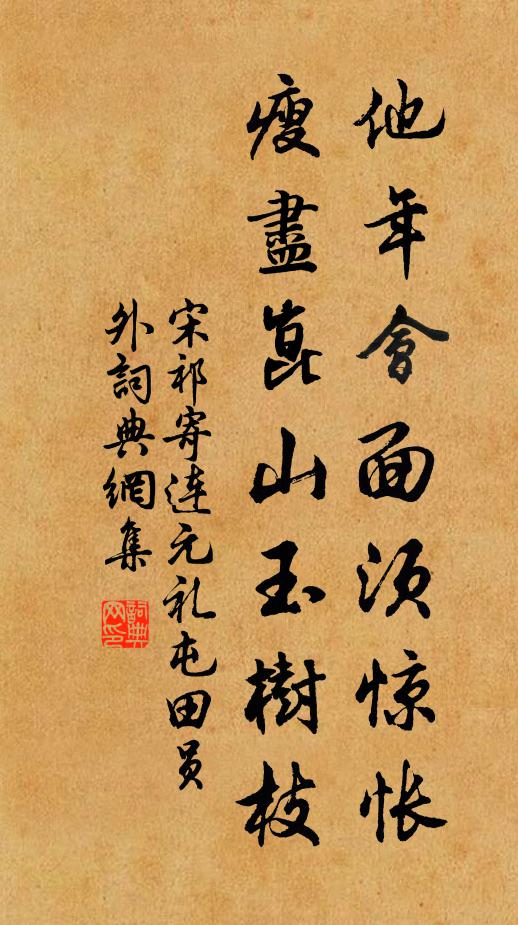 他年會面须惊怅
瘦盡崑山玉樹枝
宋祁寄连元礼屯田员
外詞典網集
詞典网印